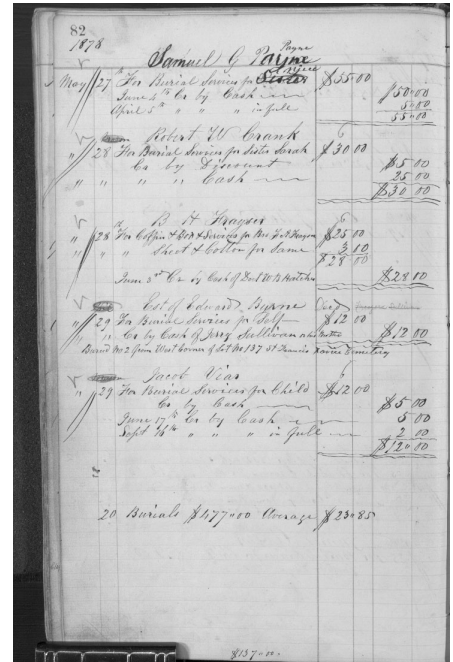 82
1878
Samuel G Payne
Payne
Niece
May 27 th For Burial Services for Sister $55 00
June 4th Cr by Cash $50 00
April 5th " " " in full 5 00
55 00
Robert W Crank
" 28 For Burial Services for Sister Sarah $30 00
Cr by Discount $5 00
" " " " Cash 25 00
$30 00
B H
" 28 For Coffin & Box & Services for Mrs $25 00
" " Sheet & Cotton for Same 3 10
$28 00
June 3rd Cr by Cash of W B $28 10
Est of Edward Byrne Decd
" 29 For Burial Services for Self $12 00
" " Cr by Cash of Jerry Sullivan $12 00
Buried No 2 from West Corner of Lot No 137 St Francis Xavier Cemetery
Jacob Vias
" 29 For Burial Services for Child $12 00
Cr by Cash $5 00
June 17th Cr by Cash 5 00
Sept 14th " " " in full 2 00
$12 00
20 Burials $477 00 Average $23 85
$137 00